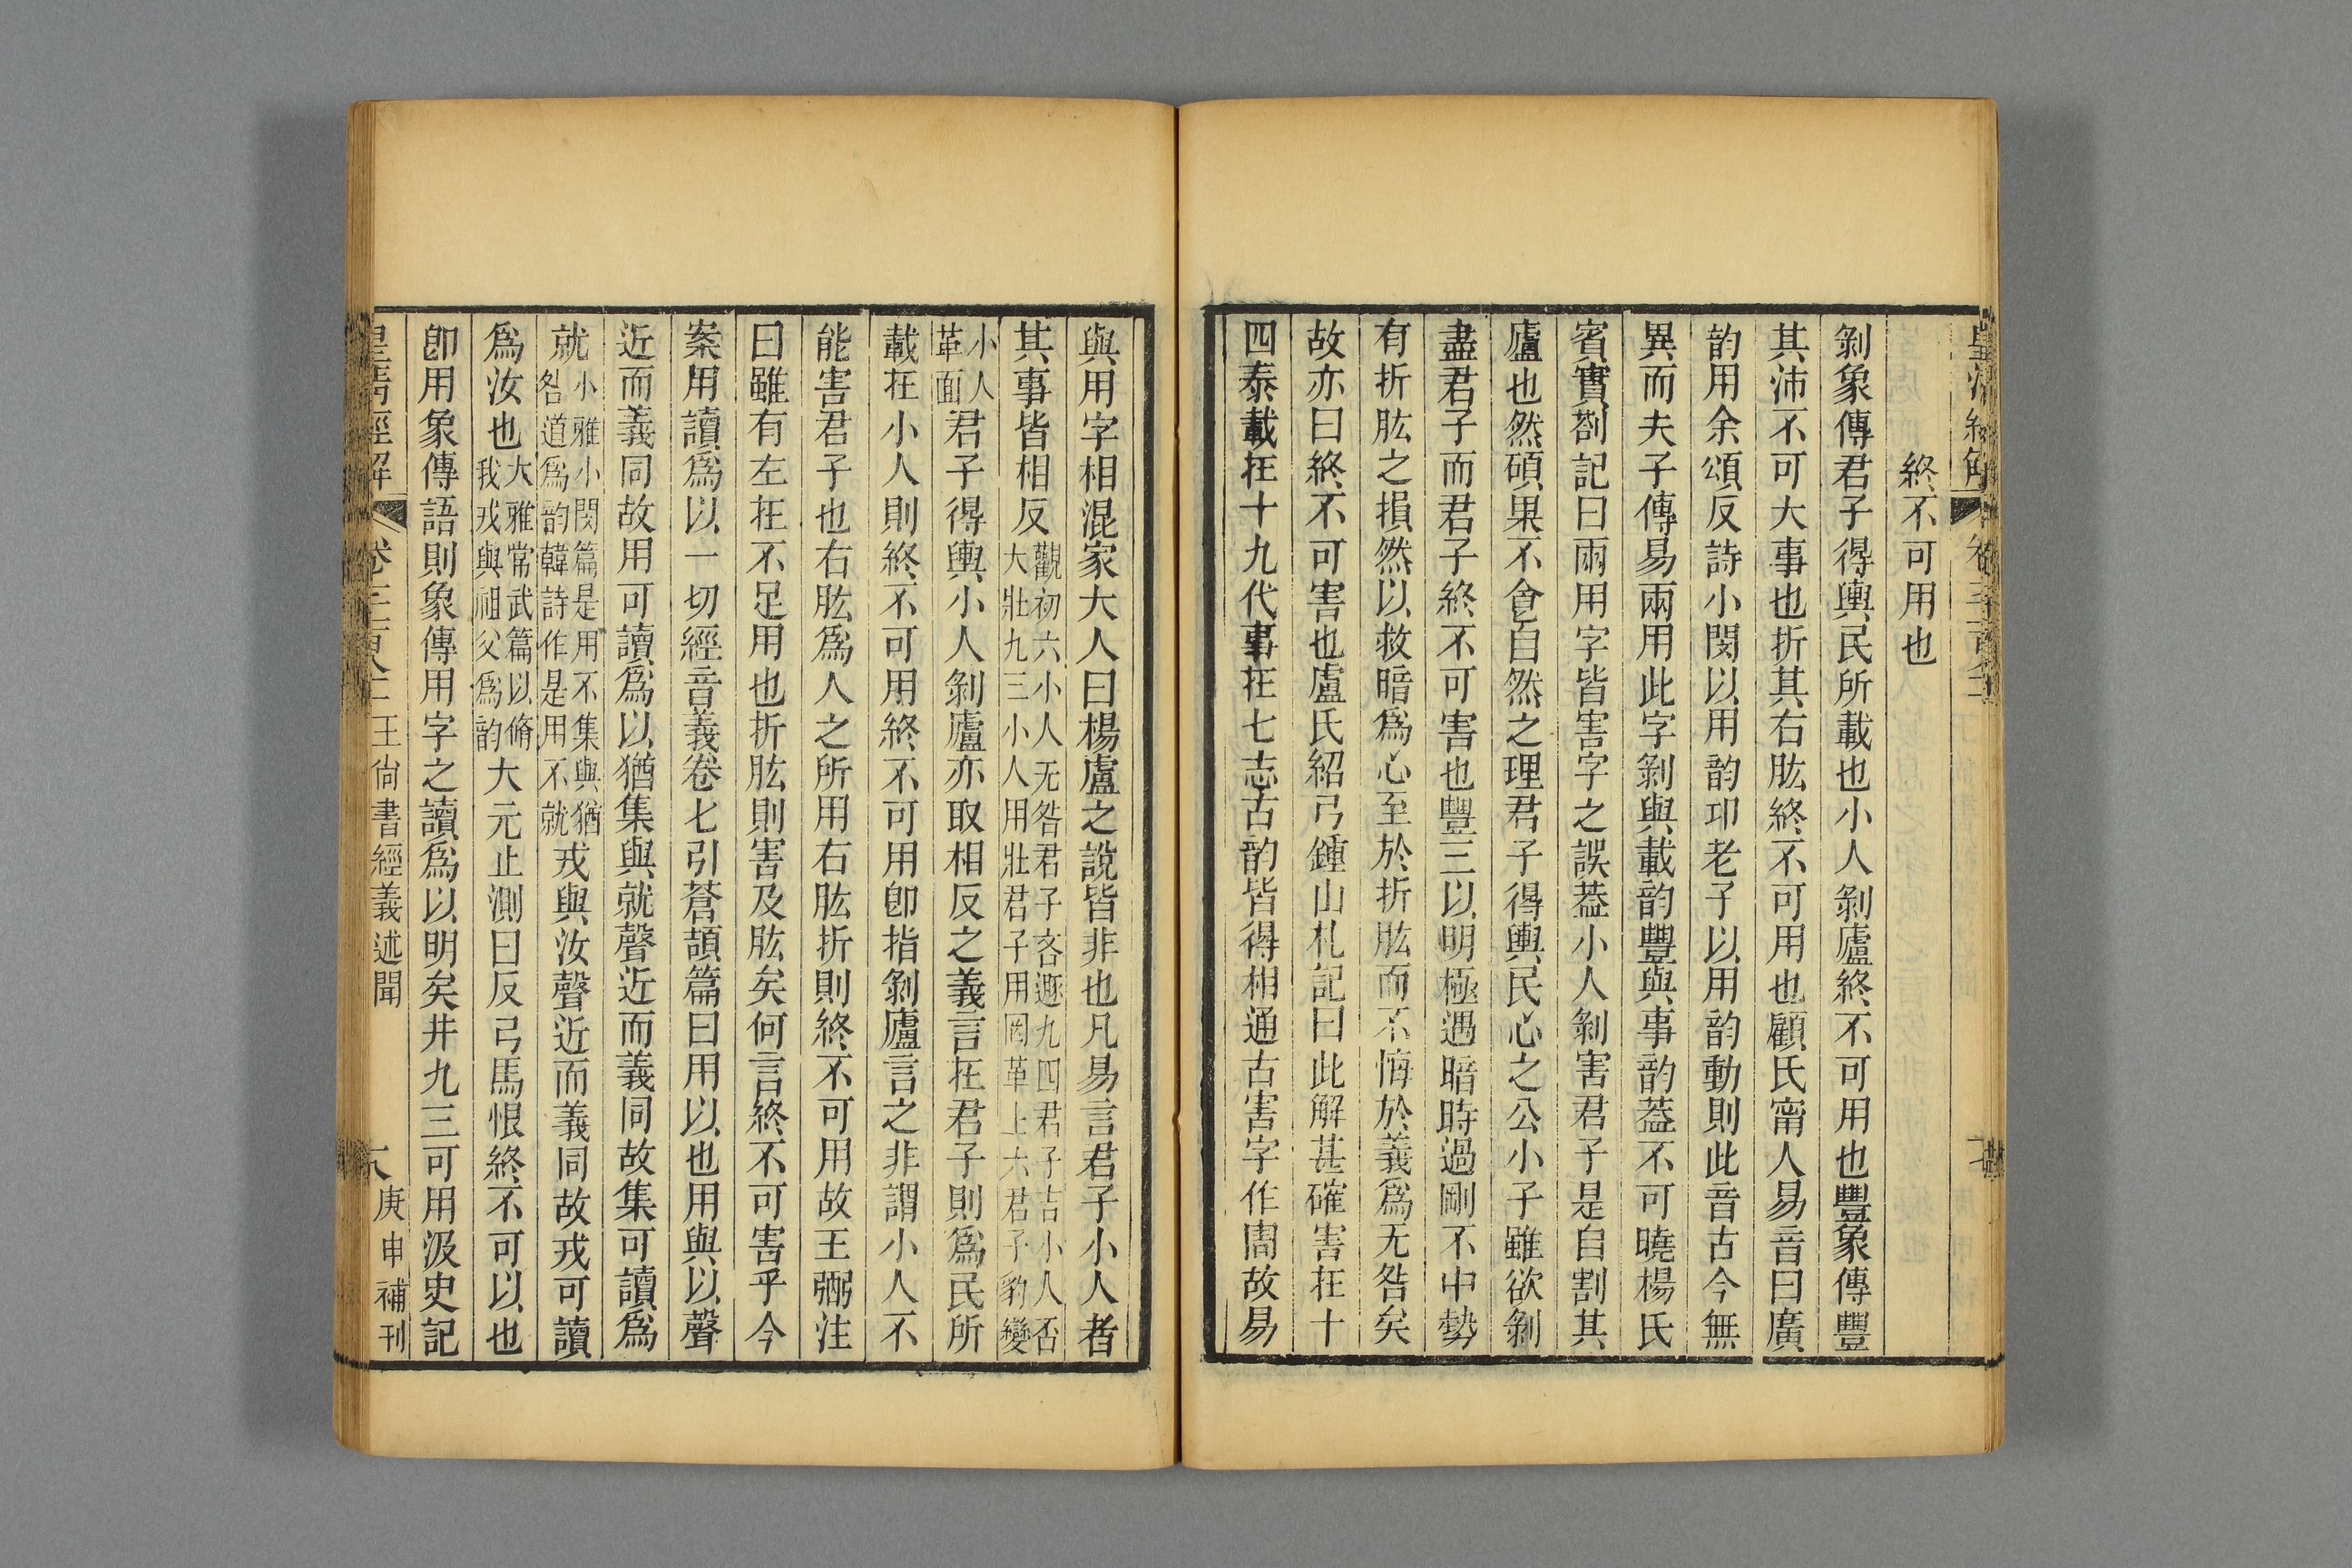 終不可用也
剝象傳君子得輿民所載也小人剝廬終不可用也豐象傳豐
其沛不可大事也折其右肱終不可用也顧氏甯人易音曰廣
韵用余頌反詩小閔以用韵邛老子以用韵動則此音古今無
異而夫子傳易兩用此字剝與載韵豐與事韵葢不可曉楊氏
賓實劄記曰兩用字皆害字之誤葢小人剝害君子是自割其
廬也然碩果不食自然之理君子得輿民心之公小子雖欲剝
盡君子而君子終不可害也豐三以明極遇暗時過剛不中勢
有折肱之損然以救暗爲心至於折肱而不悔於義爲无咎矣
故亦曰終不可害也盧氏紹弓鍾山札記曰此解甚確害在十
四泰載在十九代事在七志古韵皆得相通古害字作周故易
與用字相混家大人曰楊盧之說皆非也凡易言君子小人者
其事皆相反觀初六小人无咎君子吝遯九四君子吉小人否
大壯九三小人用壯君子用罔革上六君子豹變
小人
革面君子得輿小人剝廬亦取相反之義言在君子則爲民所
載在小人則終不可用終不可用卽指剝廬言之非謂小人不
能害君子也右肱爲人之所用右肱折則終不可用故王弼注
曰雖有左在不足用也折肱則害及肱矣何言終不可害乎今
案用讀爲以一切經音義卷七引蒼頡篇曰用以也用與以聲
近而義同故用可讀爲以猶集與就聲近而義同故集可讀爲
就小雅小閔篇是用不集與猶
咎道爲韵韓詩作是用不就戎與汝聲近而義同故戎可讀
爲汝也大雅常武篇以脩
我戎與祖父爲韵大元止測曰反弓馬恨終不可以也
卽用象傳語則象傳用字之讀爲以明矣井九三可用汲史記
皇清經解 卷千一百八十一 王尙書經義述聞 大 庚申補刊